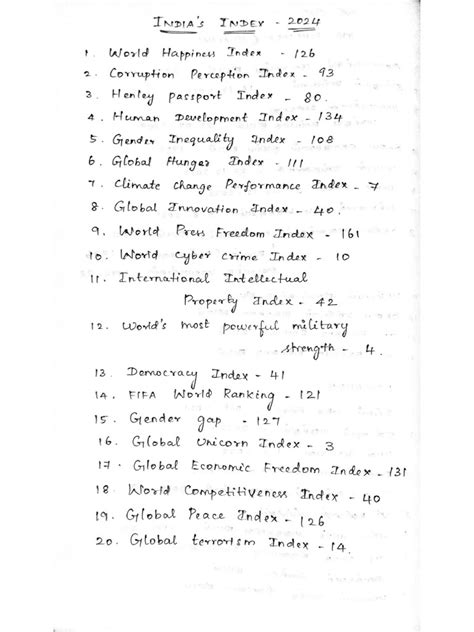 INDIA'S INDEX - 2024
1. World Happiness Index - 126
2. Corruption Perception Index - 93
3. Henley passport Index - 80.
4. Human Development Index - 134
5. Gender Inequality Index - 108
6. Global Hunger Index - 111
7. Climate change Performance Index - 7
8. Global Innovation Index - 40.
9. World Press Freedom Index - 161
10. World Cyber Crime Index - 10
11. International Intellectual
Property Index - 42
12. World's most powerful military
strength - 4.
13. Democracy Index - 41
14. FIFA World Ranking - 121
15. Gender gap - 127
16. Global Unicorn Index - 3
17. Global Economic Freedom Index - 131
18. World Competitiveness Index - 40
19. Global Peace Index - 126
20. Global terrorism Index - 14.